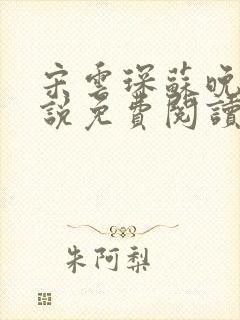 宋雲琛蘇晚
說免費閱讀
朱阿梨